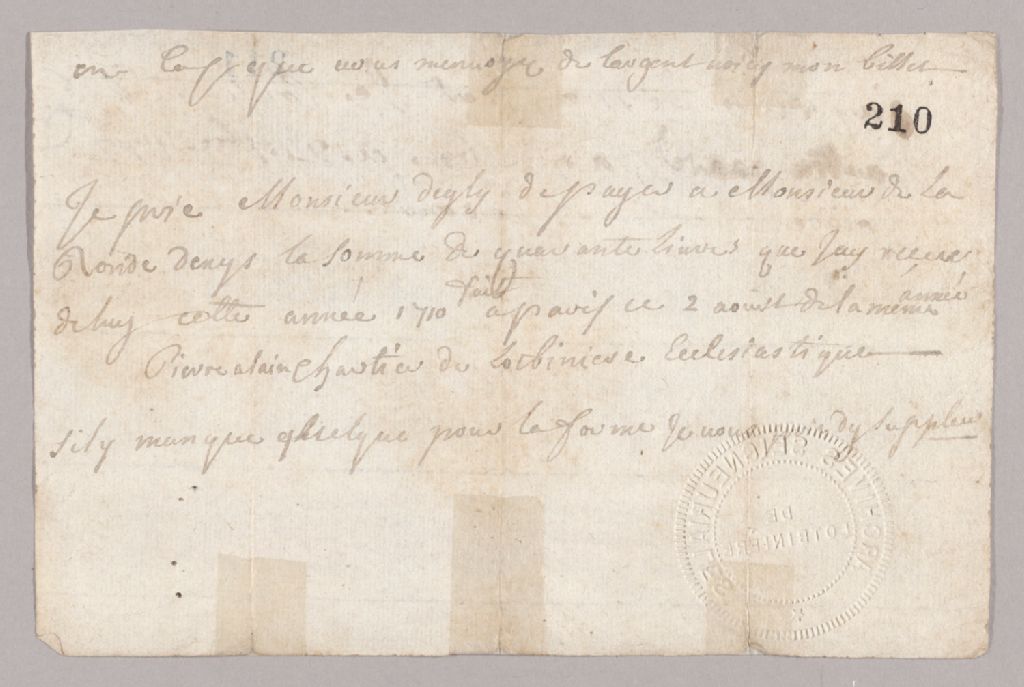 que vous menvoyez de largent voicy mon billet
210
Je prie Monsieur degly de payer a Monsieur de La
Ronde denys la somme de quarante livres que Jay receues
de luy cette année 1710 fait a paris ce 2 aoust de la meme année
Pierre alain Chartier de Lotbiniere Ecclesiastique
sily manque qlselque pour la forme Je vous dy suppleer
ARCHIVES SEIGNEURIALES
DE
LOTBINIERE